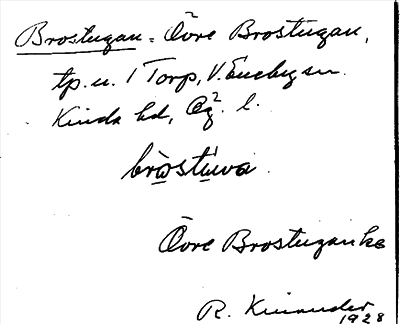 Brostugan = Övre Brostugan,
tp. u. 1 Torp, V. Eneby sn.
Kinda hd, Ög. l.
bròstùwa
Övre Brostugan ks
R. Kinander
1928